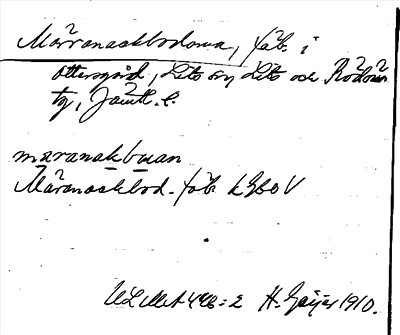 Märranackbodarna, fäb. i
Ottersgård, Lits sn, Lits och Rödöns
tg, Jämtl. l.
maranakbuan
Märanackbod- fäb.
ULMA 446:2 H. Geijer 1910.